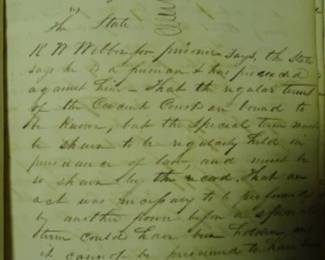 The State
R. W. Webber for prisoner says, the State
says he is a freeman & has proceeded
against him - That the regular terms
of the Circuit Court are bound to
be known, but the special term must
be shown to be regularly held in
pursuance of law, and must be
so shown by the record. That an
act was necessary to be performed
by another power before a special
term could have been holden, and
it cannot be presumed to have been